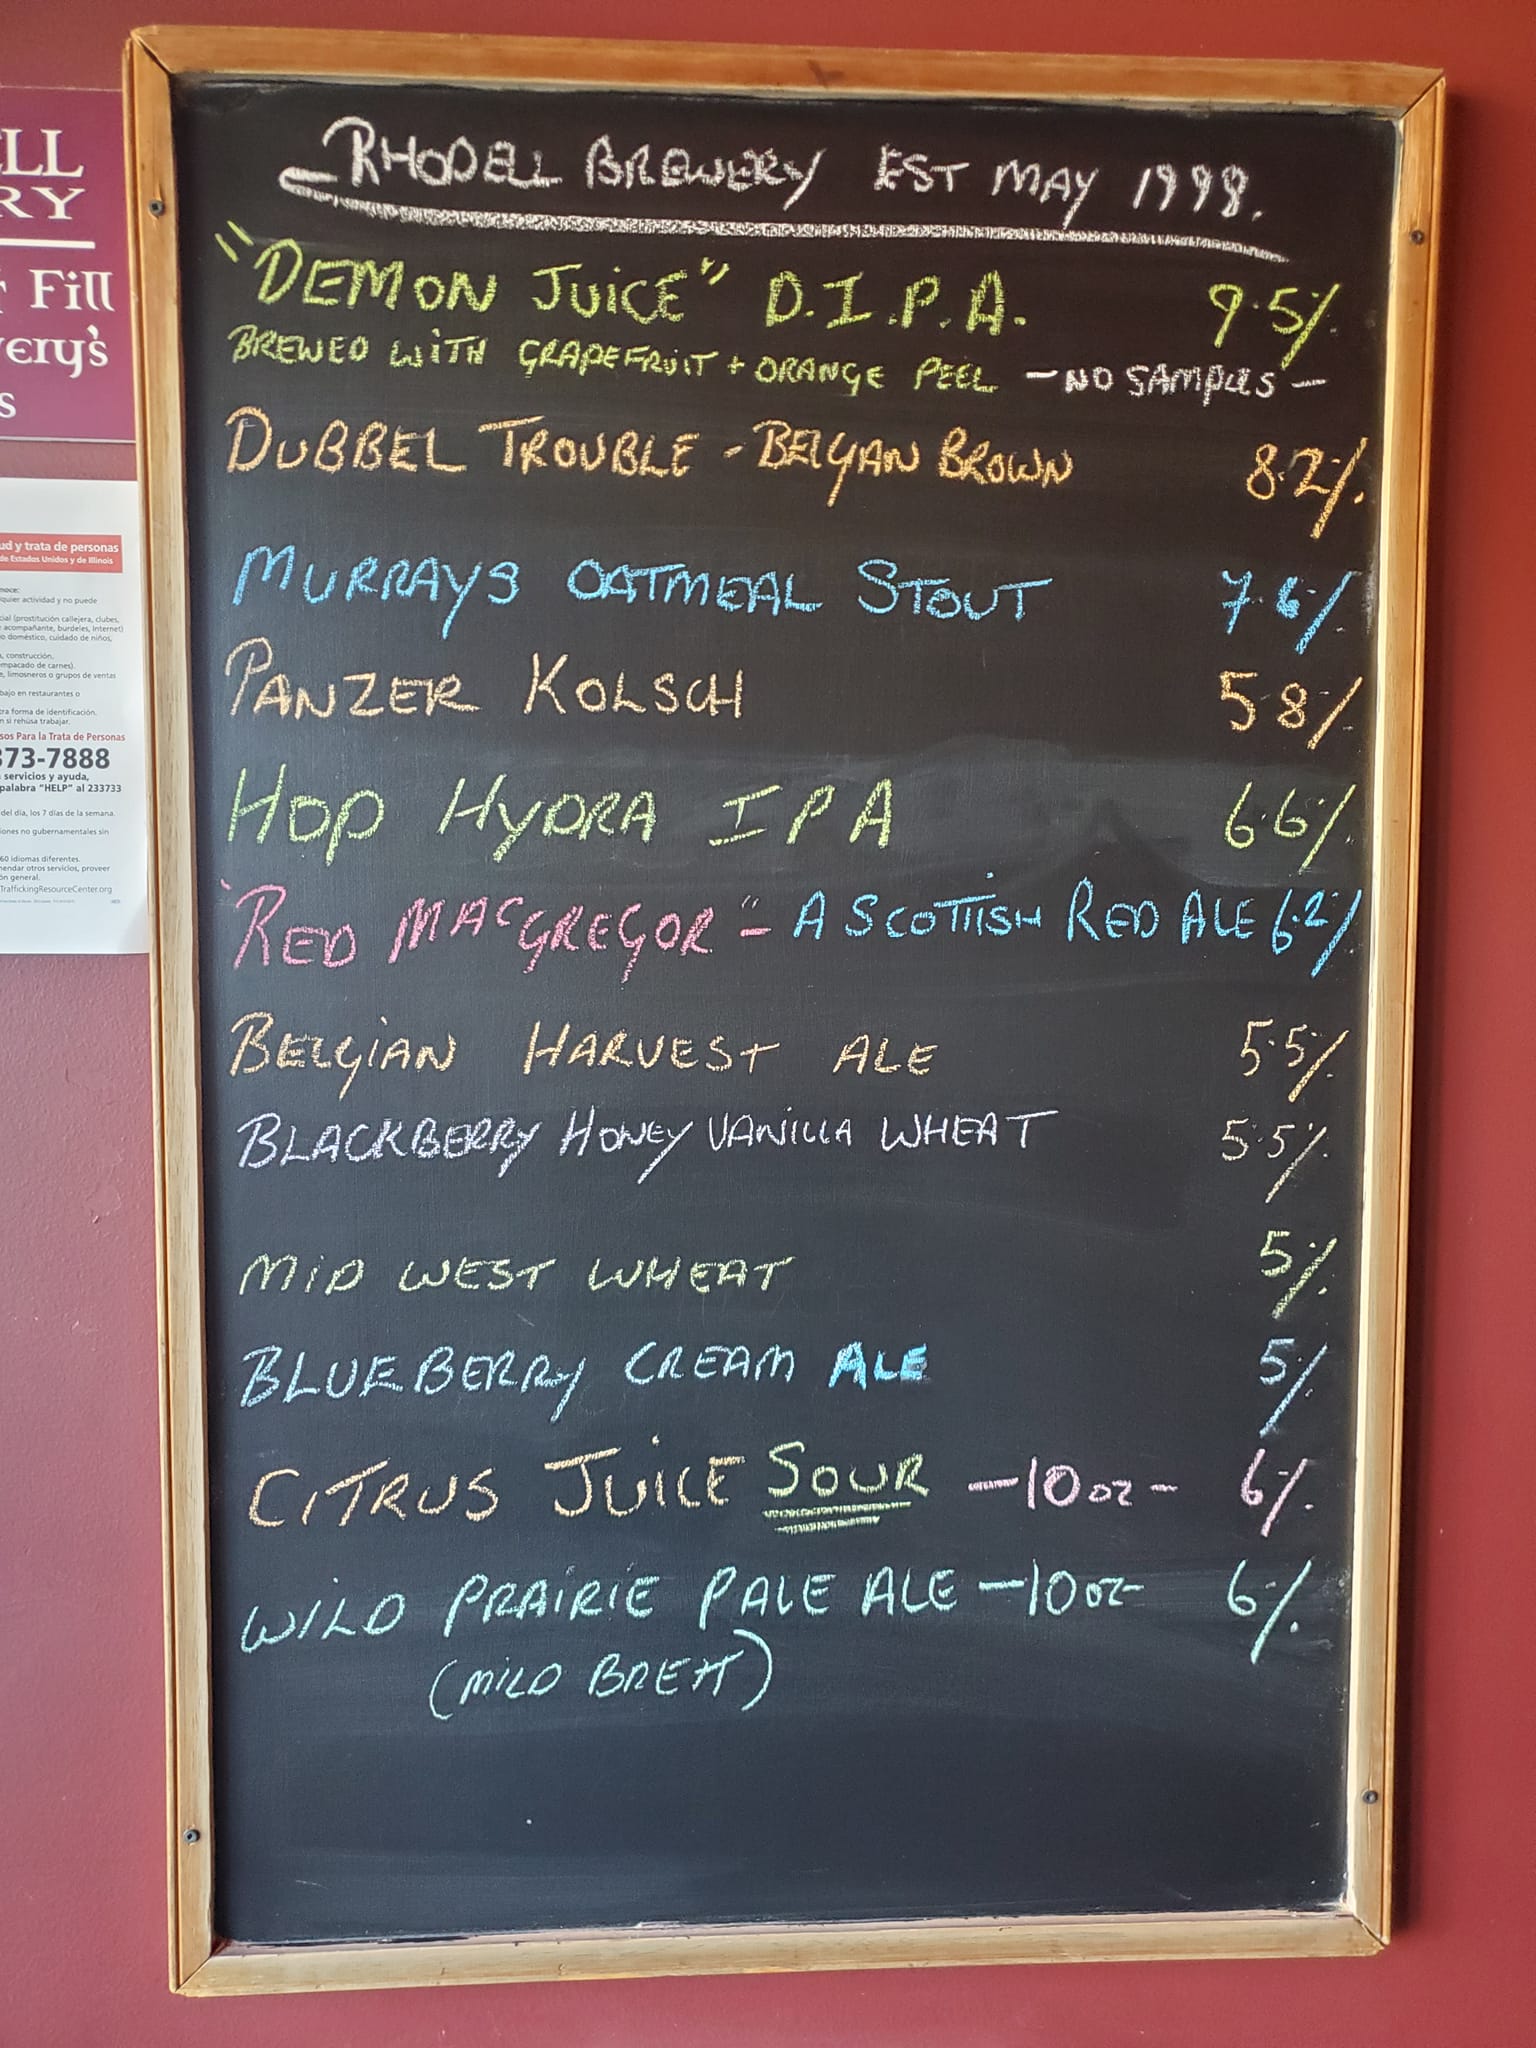 RHODELL BREWERY EST MAY 1998.
"DEMON JUICE" D.I.P.A. 9.5%
BREWED WITH GRAPEFRUIT + ORANGE PEEL - NO SAMPLES -
DUBBEL TROUBLE - BELGIAN BROWN 8.2%
MURRAYS OATMEAL STOUT 7.6%
PANZER KOLSCH 5.8%
HOP HYDRA IPA 6.6%
"RED MACGREGOR" - A SCOTTISH RED ALE 6.2%
BELGIAN HARVEST ALE 5.5%
BLACKBERRY HONEY VANILLA WHEAT 5.5%
MID WEST WHEAT 5%
BLUEBERRY CREAM ALE 5%
CITRUS JUICE SOUR - 10oz - 6%
WILD PRAIRIE PALE ALE - 10oz - 6%
(MILD BRETT)
ELL
RY
Fill
very's
s
ud y trata de personas
de Estados Unidos y de Illinois
quier actividad y no puede
cial (prostitución callejera, clubes,
acompañante, burdeles, Internet)
o doméstico, cuidado de niños,
, construcción,
mpacado de carnes).
e, limosneros o grupos de ventas
bajo en restaurantes o
tra forma de identificación.
n si rehúsa trabajar.
sos Para la Trata de Personas
373-7888
servicios y ayuda,
palabra "HELP" al 233733
del día, los 7 días de la semana.
iones no gubernamentales sin
60 idiomas diferentes.
mendar otros servicios, proveer
ón general.
TraffickingResourceCenter.org